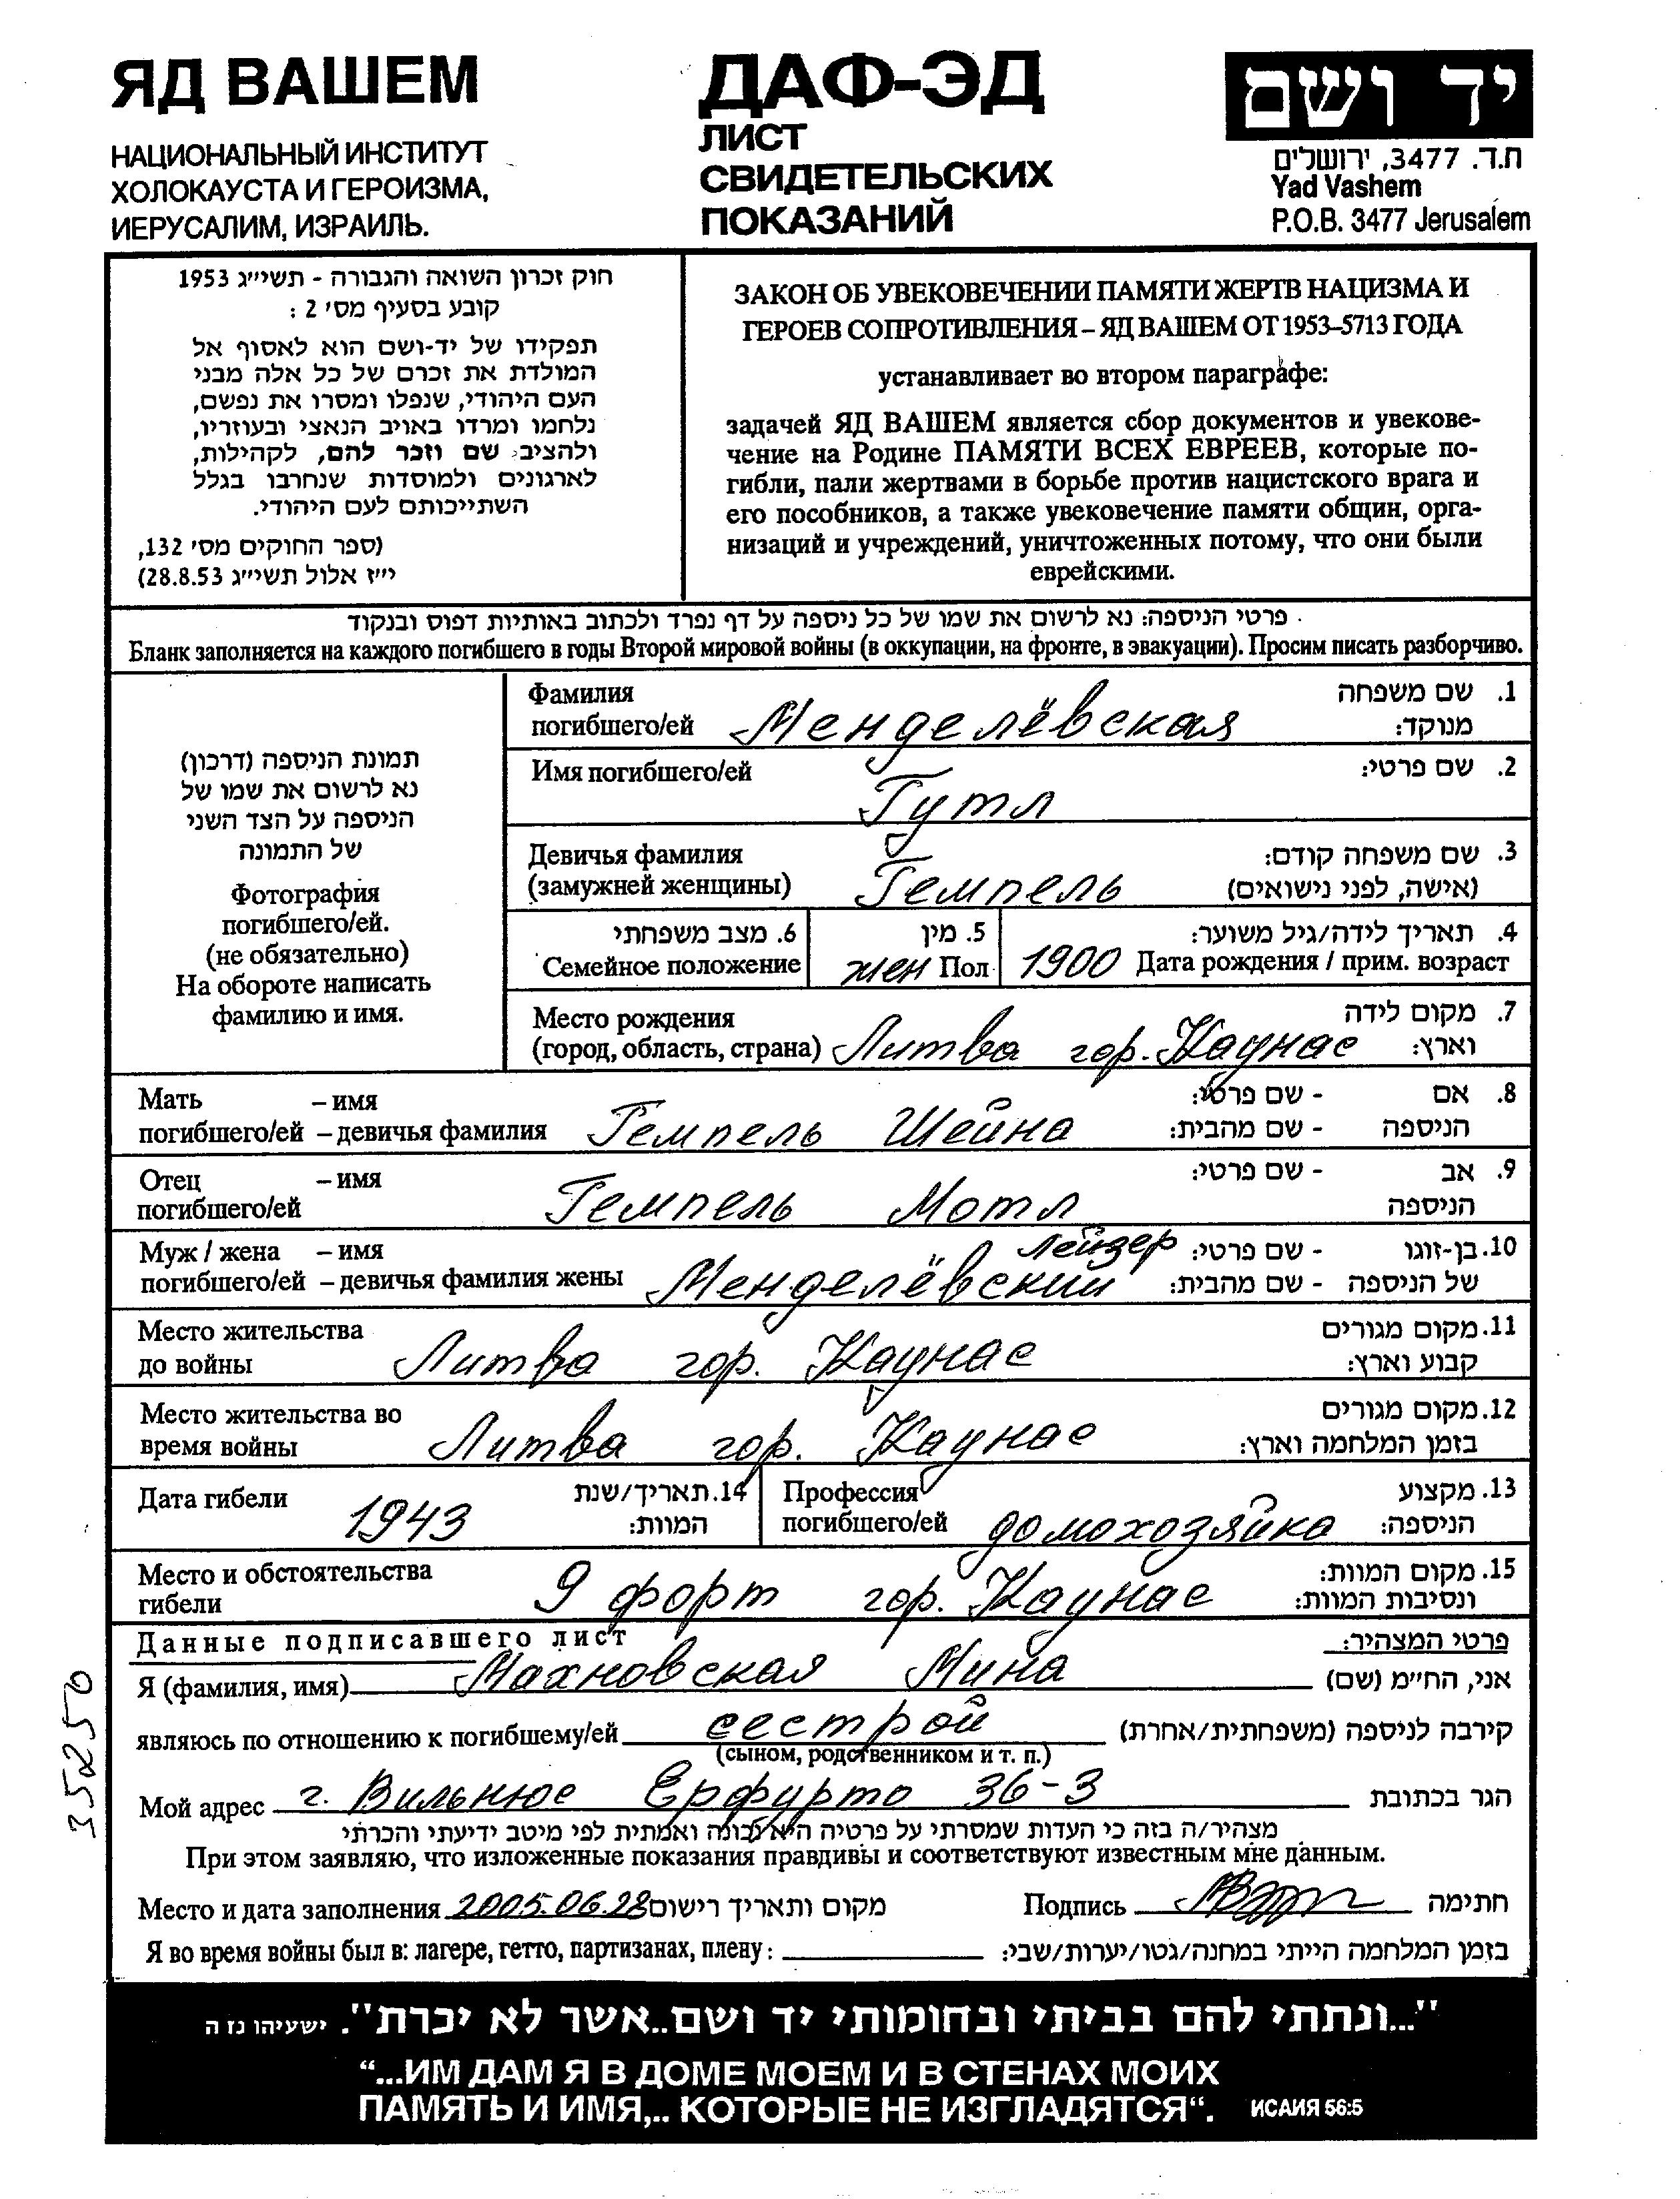 ЯД ВАШЕМ
НАЦИОНАЛЬНЫЙ ИНСТИТУТ
ХОЛОКАУСТА И ГЕРОИЗМА,
ИЕРУСАЛИМ, ИЗРАИЛЬ.
ДАФ-ЭД
ЛИСТ
СВИДЕТЕЛЬСКИХ
ПОКАЗАНИЙ
יד ושם
ת.ד. 3477, ירושלים
Yad Vashem
P.O.B. 3477 Jerusalem
חוק זכרון השואה והגבורה - תשי״ג 1953
קובע בסעיף מס׳ 2 :
תפקידו של יד-ושם הוא לאסוף אל
המולדת את זכרם של כל אלה מבני
העם היהודי, שנפלו ומסרו את נפשם,
נלחמו ומרדו באויב הנאצי ובעוזריו,
ולהציב שם וזכר להם, לקהילות,
לארגונים ולמוסדות שנחרבו בגלל
השתייכותם לעם היהודי.
(ספר החוקים מס׳ 132,
י״ז אלול תשי״ג 28.8.53)
ЗАКОН ОБ УВЕКОВЕЧЕНИИ ПАМЯТИ ЖЕРТВ НАЦИЗМА И
ГЕРОЕВ СОПРОТИВЛЕНИЯ – ЯД ВАШЕМ ОТ 1953–5713 ГОДА
устанавливает во втором параграфе:
задачей ЯД ВАШЕМ является сбор документов и увекове-
чение на Родине ПАМЯТИ ВСЕХ ЕВРЕЕВ, которые по-
гибли, пали жертвами в борьбе против нацистского врага и
его пособников, а также увековечение памяти общин, орга-
низаций и учреждений, уничтоженных потому, что они были
еврейскими.
פרטי הניספה: נא לרשום את שמו של כל ניספה על דף נפרד ולכתוב באותיות דפוס ובנקוד
Бланк заполняется на каждого погибшего в годы Второй мировой войны (в оккупации, на фронте, в эвакуации). Просим писать разборчиво.
תמונת הניספה (דרכון)
נא לרשום את שמו של
הניספה על הצד השני
של התמונה
Фотография
погибшего/ей.
(не обязательно)
На обороте написать
фамилию и имя.
Фамилия 1. שם משפחה
погибшего/ей Менделёвская מנוקד:
Имя погибшего/ей 2. שם פרטי:
Гутл
Девичья фамилия 3. שם משפחה קודם:
(замужней женщины) Гемпель (אישה, לפני נישואים)
6. מצב משפחתי 5. מין 4. תאריך לידה/גיל משוער:
Семейное положение жен Пол 1900 Дата рождения / прим. возраст
Место рождения 7. מקום לידה
(город, область, страна) Литва гор. Каунас וארץ:
Мать – имя - שם פרטי: 8. אם
погибшего/ей – девичья фамилия Гемпель Шейна - שם מהבית: הניספה
Отец – имя - שם פרטי: 9. אב
погибшего/ей Гемпель Мотл הניספה
Муж / жена – имя Лейзер - שם פרטי: 10. בן-זוגו
погибшего/ей – девичья фамилия жены Менделёвский - שם מהבית: של הניספה
Место жительства 11. מקום מגורים
до войны Литва гор. Каунас קבוע וארץ:
Место жительства во 12. מקום מגורים
время войны Литва гор. Каунас בזמן המלחמה וארץ:
Дата гибели 14. תאריך/שנת Профессия 13. מקצוע
1943 המוות: погибшего/ей домохозяйка הניספה:
Место и обстоятельства 15. מקום המוות:
гибели 9 форт гор. Каунас ונסיבות המוות:
Данные подписавшего лист פרטי המצהיר:
Я (фамилия, имя) Махновская Мина אני, הח״מ (שם)
являюсь по отношению к погибшему/ей сестрой קירבה לניספה (משפחתית/אחרת)
(сыном, родственником и т. п.)
Мой адрес г. Вильнюс Ерфурто 36-3 הגר בכתובת
מצהיר/ה בזה כי העדות שמסרתי על פרטיה היא נכונה ואמתית לפי מיטב ידיעתי והכרתי
При этом заявляю, что изложенные показания правдивы и соответствуют известным мне данным.
Место и дата заполнения 2005.06.28 מקום ותאריך רישום Подпись חתימה
Я во время войны был в: лагере, гетто, партизанах, плену: בזמן המלחמה הייתי במחנה/גטו/יערות/שבי:
35250
"...ונתתי להם בביתי ובחומותי יד ושם..אשר לא יכרת". ישעיהו נז ה
“...ИМ ДАМ Я В ДОМЕ МОЕМ И В СТЕНАХ МОИХ
ПАМЯТЬ И ИМЯ,.. КОТОРЫЕ НЕ ИЗГЛАДЯТСЯ“. ИСАИЯ 56:5